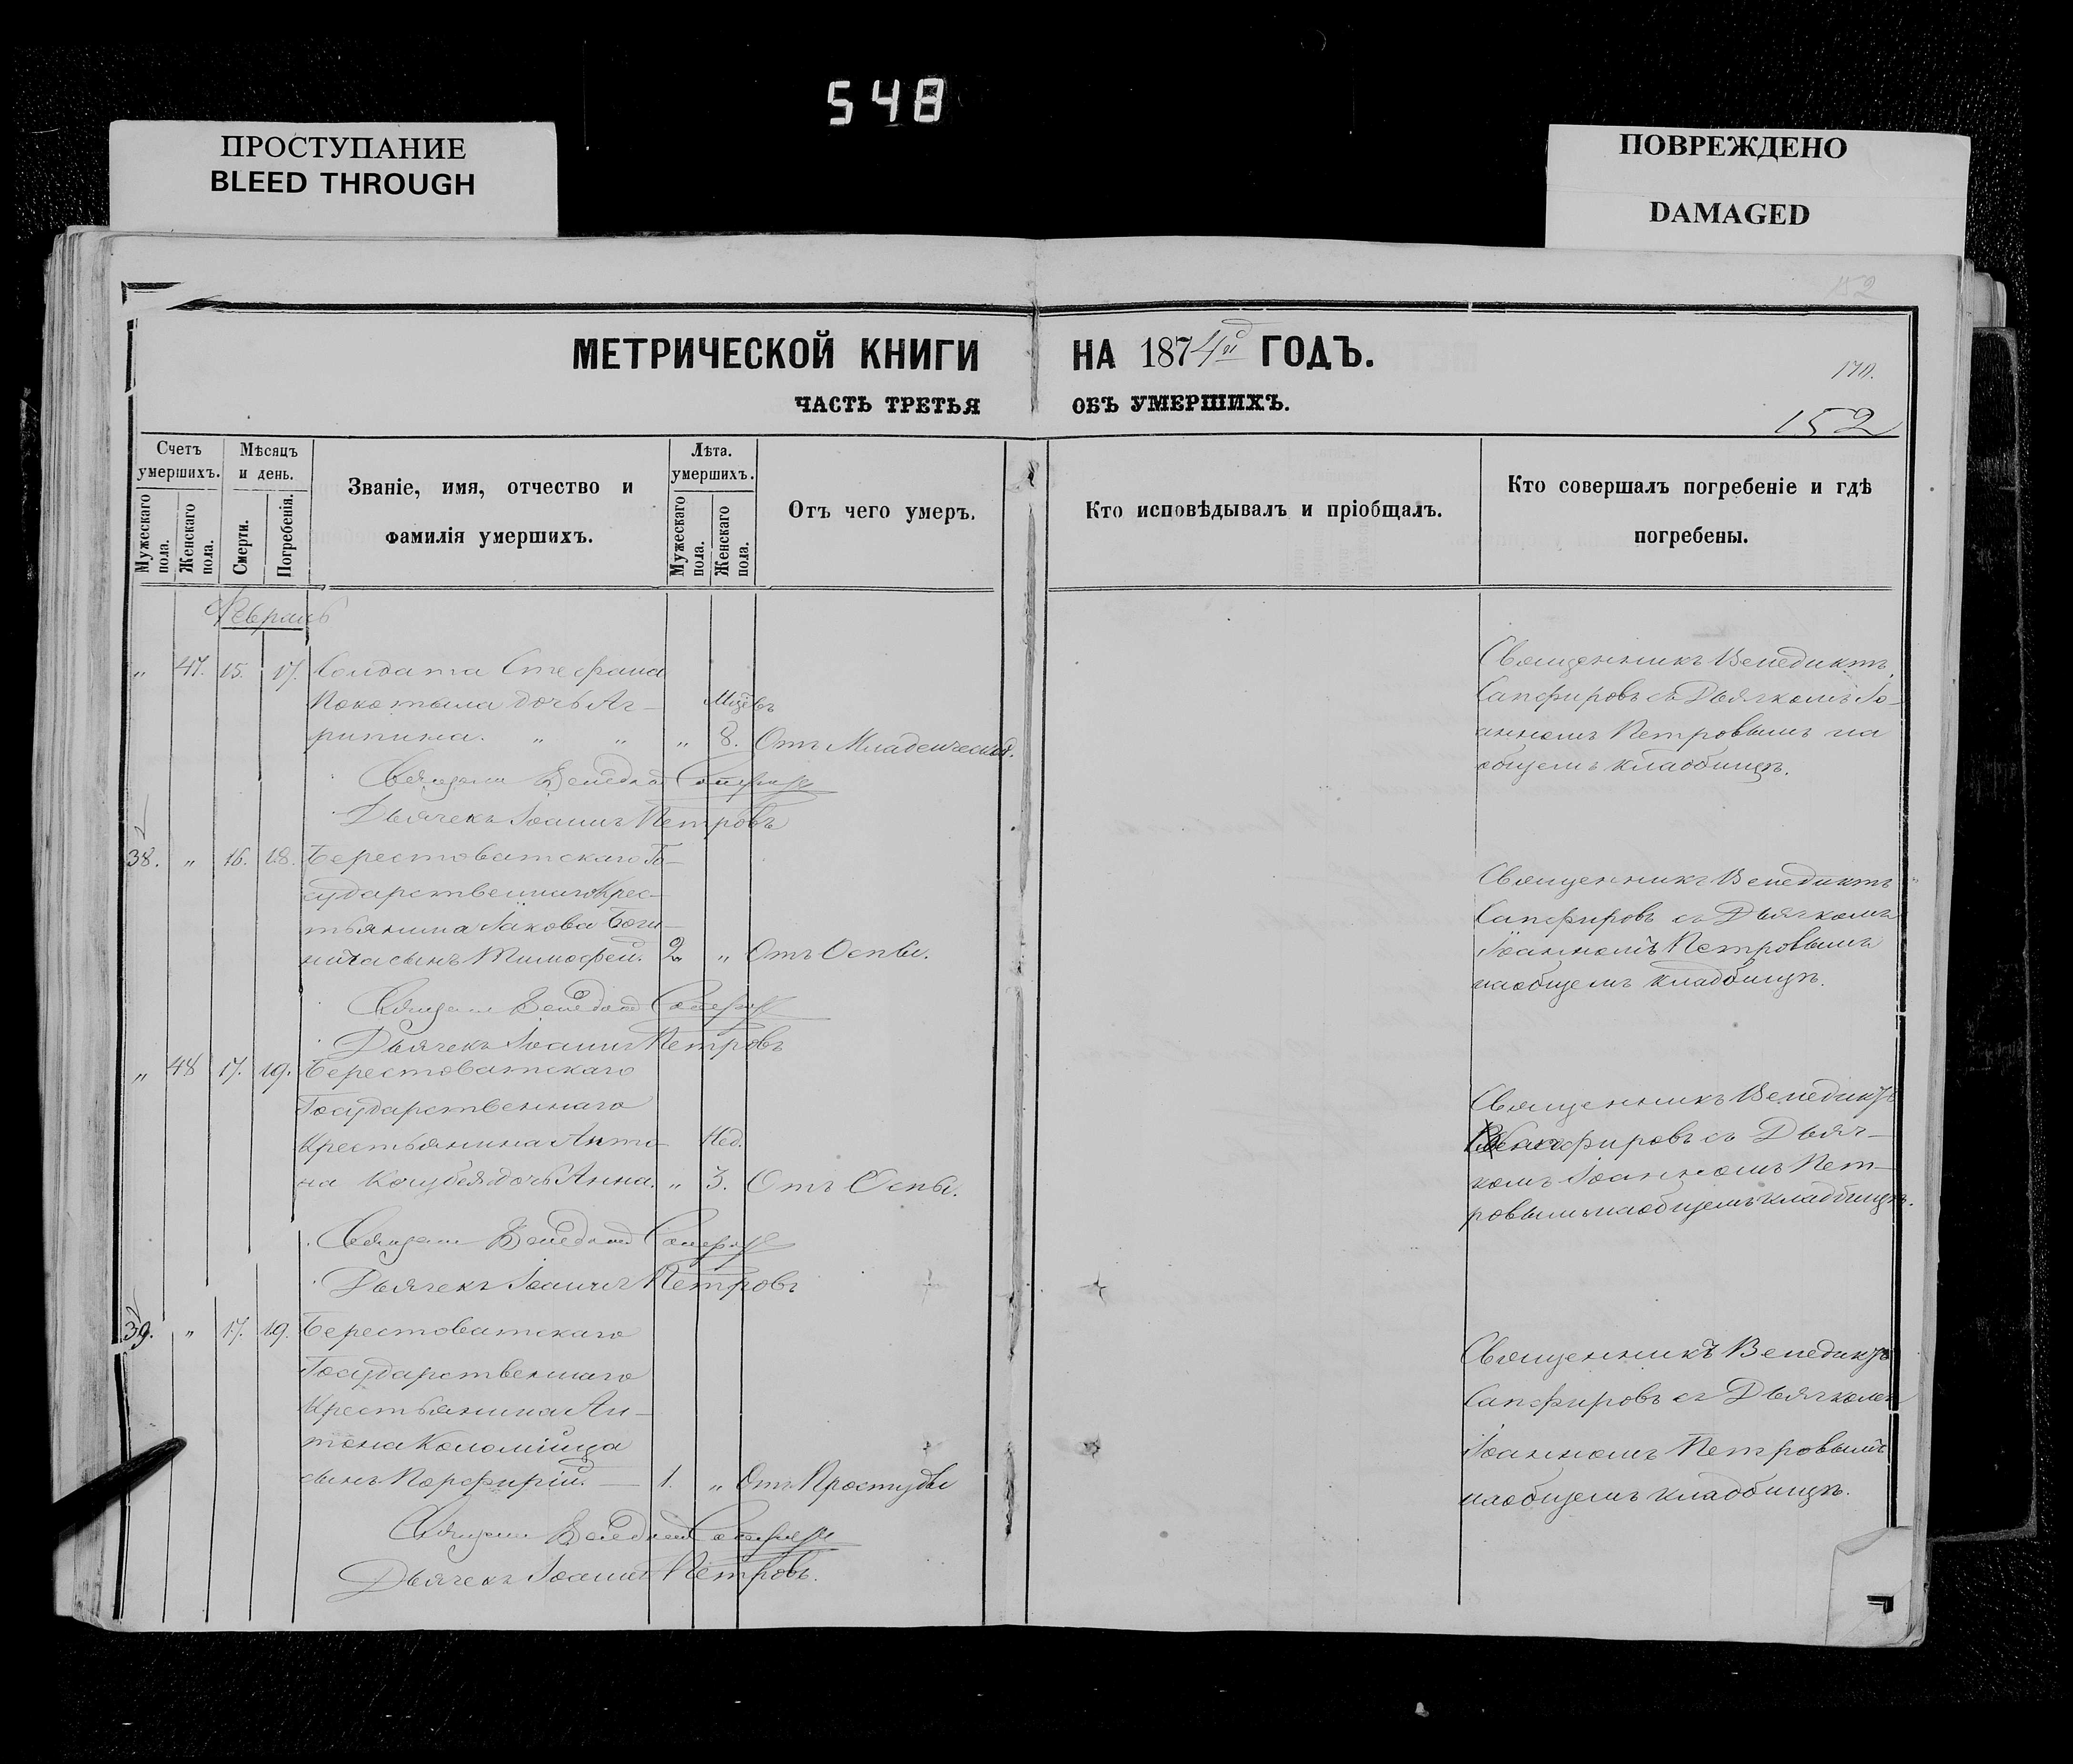 548
ПРОСТУПАНИЕ
BLEED THROUGH
ПОВРЕЖДЕНО
DAMAGED
152
МЕТРИЧЕСКОЙ КНИГИ НА 1874й ГОДЪ.
170.
ЧАСТЬ ТРЕТЬЯ ОБЪ УМЕРШИХЪ.
152
Счетъ умершихъ.
Мужескаго пола.
Женскаго пола.
Мѣсяцъ и день.
Смерти.
Погребенія.
Званіе, имя, отчество и
фамилія умершихъ.
Лѣта. умершихъ.
Мужескаго пола.
Женскаго пола.
Отъ чего умеръ.
Кто исповѣдывалъ и пріобщалъ.
Кто совершалъ погребеніе и гдѣ
погребены.
Февраль
" 47. 15. 17. Солдата Стефана
Покотыла дочь Аг-
рипина. " " " 8. Отъ Младенческой.
Священникъ Венедиктъ
Сапфировъ съ Дьячкомъ Іо-
анномъ Петровымъ на
общемъ кладбищѣ.
Дьячекъ Іоаннъ Петровъ
38. " 16. 18. Берестоватскаго Го-
сударственнаго Крес-
тьянина Іакова
сынъ Тимофей. 2 " Отъ Оспы.
Священникъ Венедиктъ
Сапфировъ съ Дьячкомъ
Іоанномъ Петровымъ
на общемъ кладбищѣ.
Дьячекъ Іоаннъ Петровъ
" 48 17. 19. Берестоватскаго
Государственнаго
Крестьянина Анто- Нед.
на Кочубея дочь Анна. " 3. Отъ Оспы.
Священникъ Венедиктъ
Сапфировъ съ Дьяч-
комъ Іоанномъ Пет-
ровымъ на общемъ кладбищѣ.
Дьячекъ Іоаннъ Петровъ
39. " 17. 19. Берестоватскаго
Государственнаго
Крестьянина Ан-
тона Коломійца
сынъ Порфирій. — 1. " Отъ Простуды
Священникъ Венедиктъ
Сапфировъ съ Дьячкомъ
Іоанномъ Петровымъ
на общемъ кладбищѣ.
Дьячекъ Іоаннъ Петровъ.